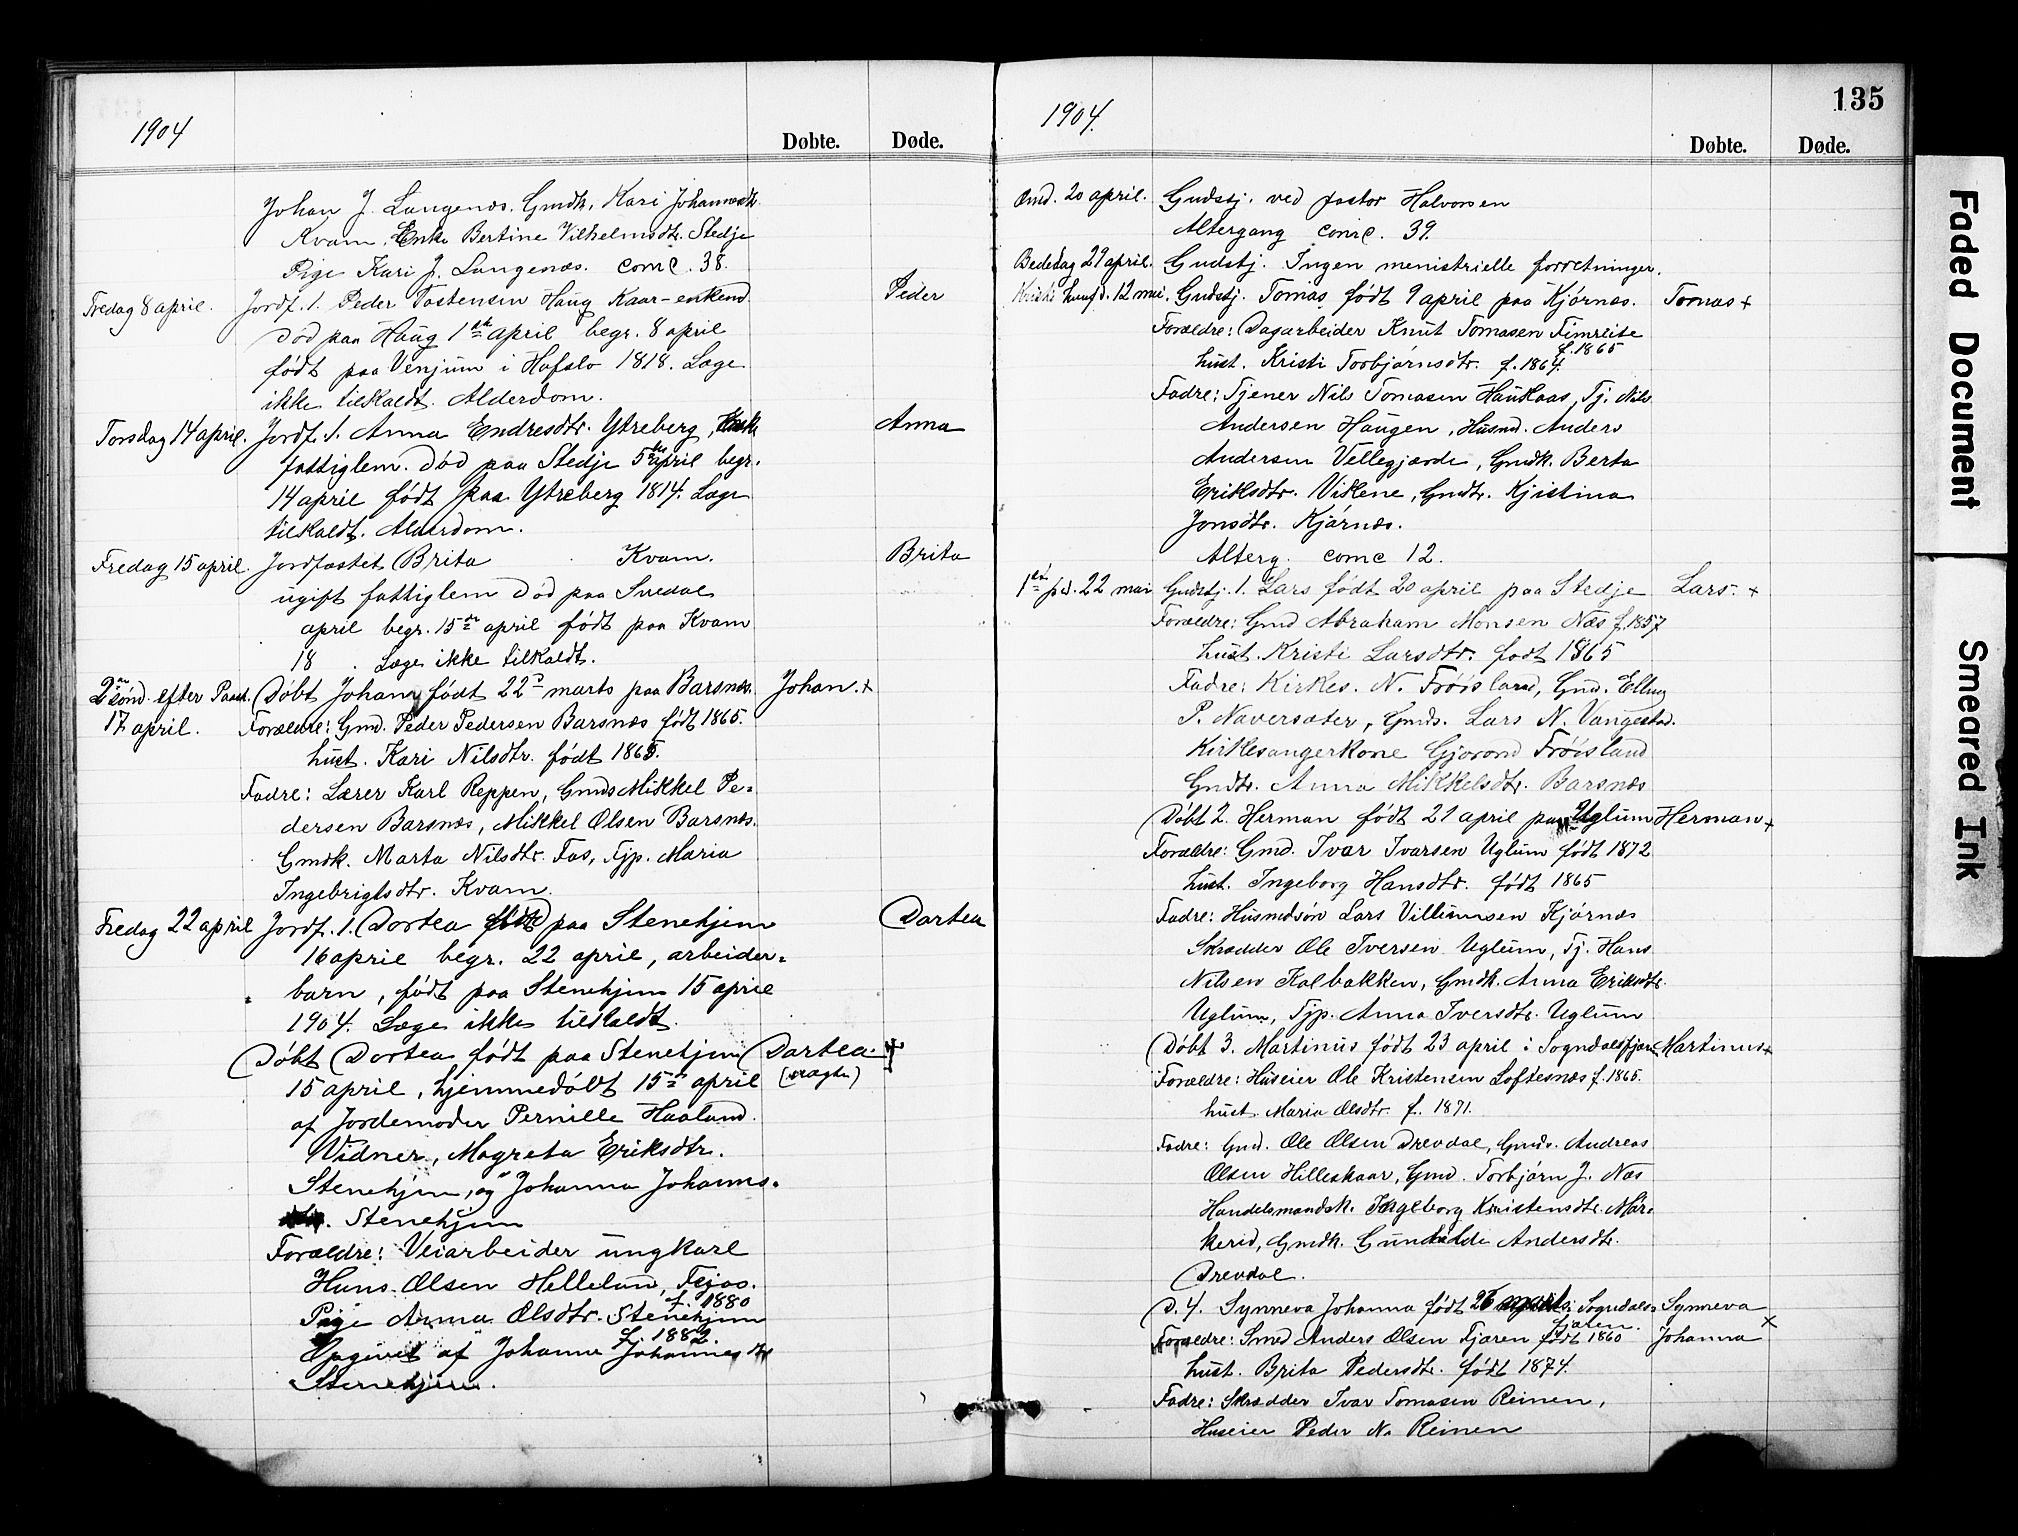 1904
Døbte. Døde.
Johan J. Langenæs. Gmdk. Kari Johannesdtr.
Kvam, Enke Bertine Vilhelmsdtr. Stedje
Pige Kari J. Langenæs. comc. 38.
Fredag 8 april. Jordf. 1. Peder Tostensen Haug Kaar-enkemd. Peder
Død paa Haug 1ste april begr. 8 april
født paa Venjum i Hafslo 1818. Læge
ikke tilkaldt. Alderdom.
Torsdag 14 april. Jordf. 1. Anna Endresdtr. Ytreberg, Anna
fattiglem. Død paa Stedje 5te april begr.
14 april født paa Ytreberg 1814. Læge
tilkaldt. Alderdom.
Fredag 15 april. Jordfæstet Brita Kvam. Brita
ugift fattiglem Død paa Svedal
april begr. 15de april født paa Kvam
18 . Læge ikke tilkaldt.
2den sønd. efter Paask. Døbt Johan født 22d marts paa Barsnæs. Johan. +
17 april. Forældre: Gmd. Peder Pedersen Barsnæs født 1865.
hust. Kari Nilsdtr. født 1865.
Fadre: Lærer Karl Reppen, Gmds Mikkel Pe-
dersen Barsnæs, Mikkel Olsen Barsnæs.
Gmdk. Marta Nilsdtr. Fas, Tjp. Maria
Ingebrigtsdtr. Kvam.
Fredag 22 april Jordf. 1. Dortea født paa Stenehjem Dortea
16 april begr. 22 april, arbeider-
barn, født paa Stenehjem 15 april
1904. Læge ikke tilkaldt.
Døbt Dortea født paa Stenehjem Dortea. +
15 april, hjemmedøbt 15de april (uægte)
af Jordemoder Pernille Haaland.
Vidner, Magreta Eriksdtr.
Stenehjem, og Johanna Johanns-
Stenehjem
Forældre: Veiarbeider ungkarl
Hans Olsen Helleland,
f. 1880
Pige Anna Olsdtr. Stenehjem
f. 1882.
Opgivet af Johanna Johannesdtr
Stenehjem.
1904.
135
Døbte. Døde.
Onsd. 20 april. Gudstj. ved pastor Halvorsen
Altergang comc. 39.
Bededag 29 april. Gudstj. Ingen menistrielle forretninger.
Kristi himfd. 12 mai. Gudstj. Tomas født 9 april paa Kjørnes. Tomas +
Forældre: Dagarbeider Knut Tomasen Fimreite
f. 1865
hust. Kristi Torbjørnsdtr. f. 1864.
Fadre: Tjener Nils Tomasen Haukaas, Tj. Nils
Andersen Haugen, Husmd. Anders
Andersen Vellegjærde, Gmdk. Berta
Eriksdtr. Vikene, Gmdtr. Kjistina
Jonsdtr. Kjørnæs.
Alterg. comc 12.
1ste pd. 22 mai Gudstj. 1. Lars født 20 april paa Stedje Lars +
Forældre: Gmd Abraham Monsen Næs f. 1857
hust. Kristi Larsdtr. født 1865
Fadre: Kirkes. N. Frøisland, Gmd. Elling
P. Naversæter, Gmds. Lars N. Vangestad.
Kirkesangerkone Gjorond Frøisland
Gmdtr. Anna Mikkelsdtr. Barsnæs
Døbt 2. Herman født 21 april paa Uglum Herman +
Forældre: Gmd. Ivar Ivarsen Uglum født 1872
hust. Ingeborg Hansdtr. født 1865
Fadre: Husmdsøn Lars Villumsen Kjørnæs
Skrædder Ole Iversen Uglum, Tj. Hans
Nilsen Kalbakken, Gmdk. Anna Eriksdtr.
Uglum, Tjp. Anna Iversdtr. Uglum
Døbt 3. Martinus født 23 april i Sogndalsfjæren Martinus +
Forældre: Huseier Ole Kristensen Loftesnæs f. 1865.
hust. Maria Olsdtr. f. 1871.
Fadre: Gmd. Ole Olsen Drevdal, Gmds. Andreas
Olsen Hilleskaar, Gmd. Torbjørn J. Næs
Handelsmandsk. Ingeborg Kristensdtr. Mär-
kerid, Gmdk. Gunhilde Andersdtr.
Drevdal.
D. 4. Synneva Johanna født 26 marts i Sogndals- Synneva
fjæren.
Forældre: Smed Anders Olsen Fjæren født 1860 Johanna ×
hust. Brita Pedersdtr. født 1874.
Fadre: Skrædder Ivar Tomasen Reinen,
Huseier Peder N. Reinen
Faded Document
Smeared Ink